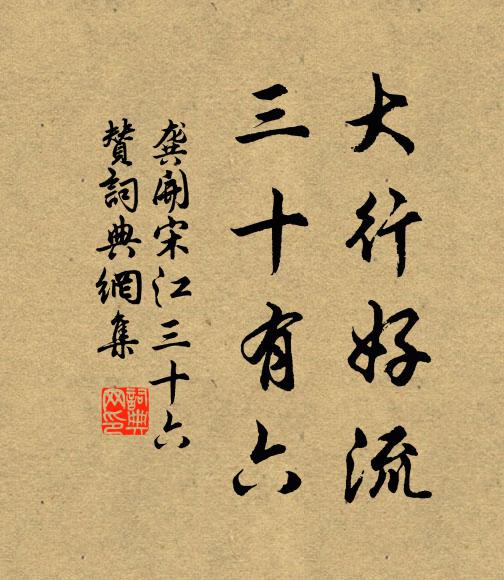 大行好流
三十有六
龔開宋江三十六
贊詞典網集
詞典網印